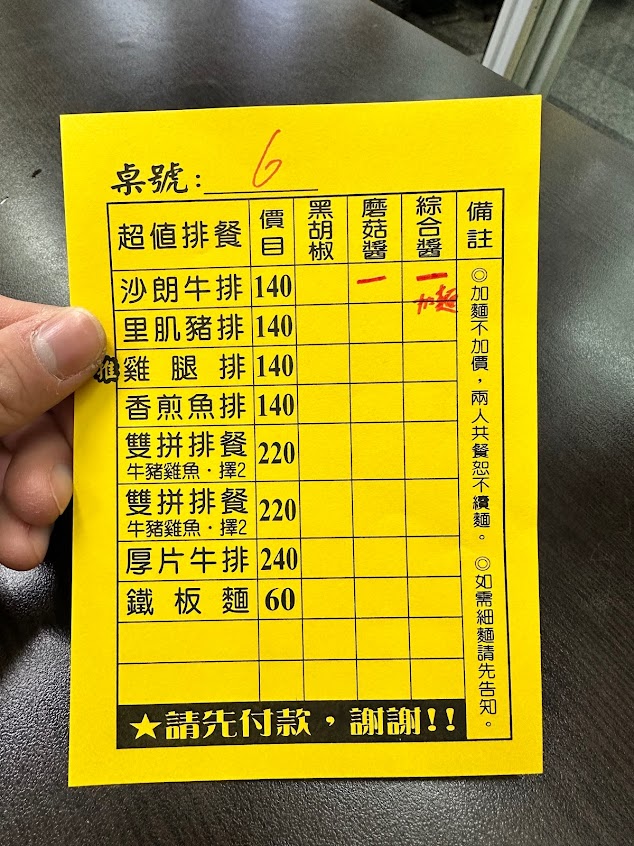 桌號：6
超值排餐 價目 黑胡椒 蘑菇醬 綜合醬 備註
沙朗牛排 140 一 一
加麵
里肌豬排 140
推 雞腿排 140
香煎魚排 140
雙拼排餐 220
牛豬雞魚・擇2
雙拼排餐 220
牛豬雞魚・擇2
厚片牛排 240
鐵板麵 60
◎加麵不加價，兩人共餐恕不續麵。◎如需細麵請先告知。
★請先付款，謝謝!!